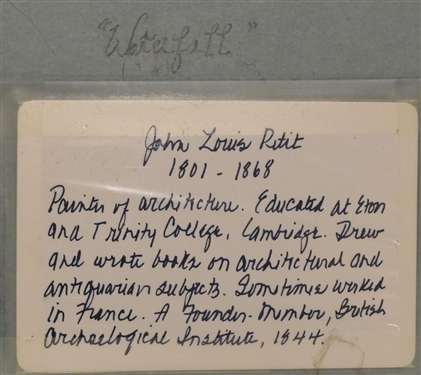 "Waterfall"
John Louis Petit
1801 - 1868
Painter of architecture. Educated at Eton
and Trinity College, Cambridge. Drew
and wrote books on architectural and
antiquarian subjects. Sometimes worked
in France. A Founder-Member, British
Archaeological Institute, 1844.